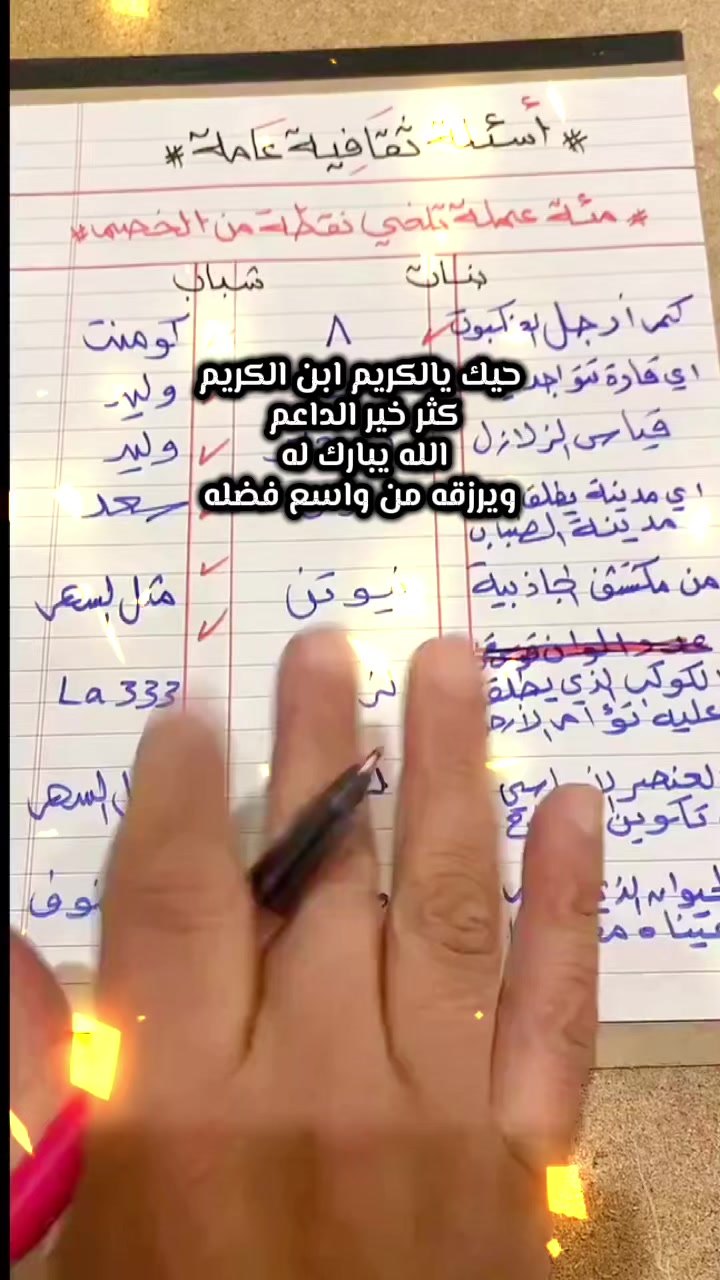 # أسئلة ثقافية عامة #
# مئة عملة تلغي نقطة من الخصم #
بنات شباب
كم أرجل العنكبوت ٨ كومنت
اي قارة تتواجد وليد
قياس الزلازل وليد
اي مدينة يطلق سعد
مدينة الضباب
من مكتشف الجاذبية نيوتن مثل السعر
الكوكب الذي يطلق La 333
عليه تؤام الأرض
العنصر
تكوين
الحيوان الذي نوف
عيناه
حيك يالكريم ابن الكريم
كثر خير الداعم
الله يبارك له
ويرزقه من واسع فضله